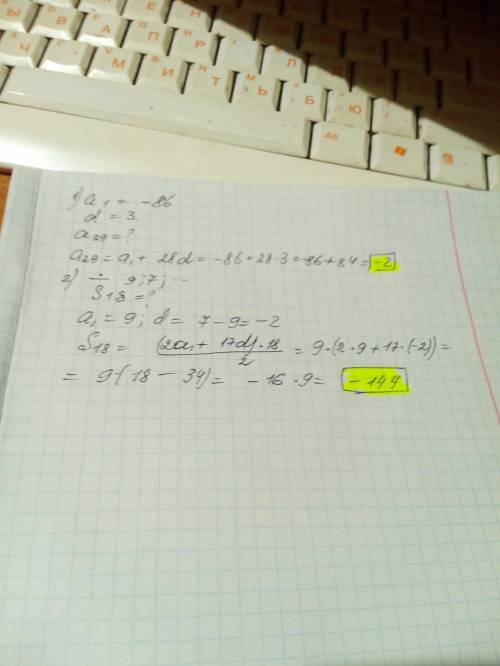 Ы В Е Н
В А П Р О
Ч С М И Т Ь Б Ю Alt
1) a₁ = -86
d = 3
a₂₉ = ?
a₂₉ = a₁ + 28d = -86 + 28·3 = -86 + 84 = -2
2) ÷ 9; 7; ...
S₁₈ = ?
a₁ = 9; d = 7 - 9 = -2
S₁₈ = (2a₁ + 17d)·18 / 2 = 9·(2·9 + 17·(-2)) =
= 9·(18 - 34) = -16·9 = -144